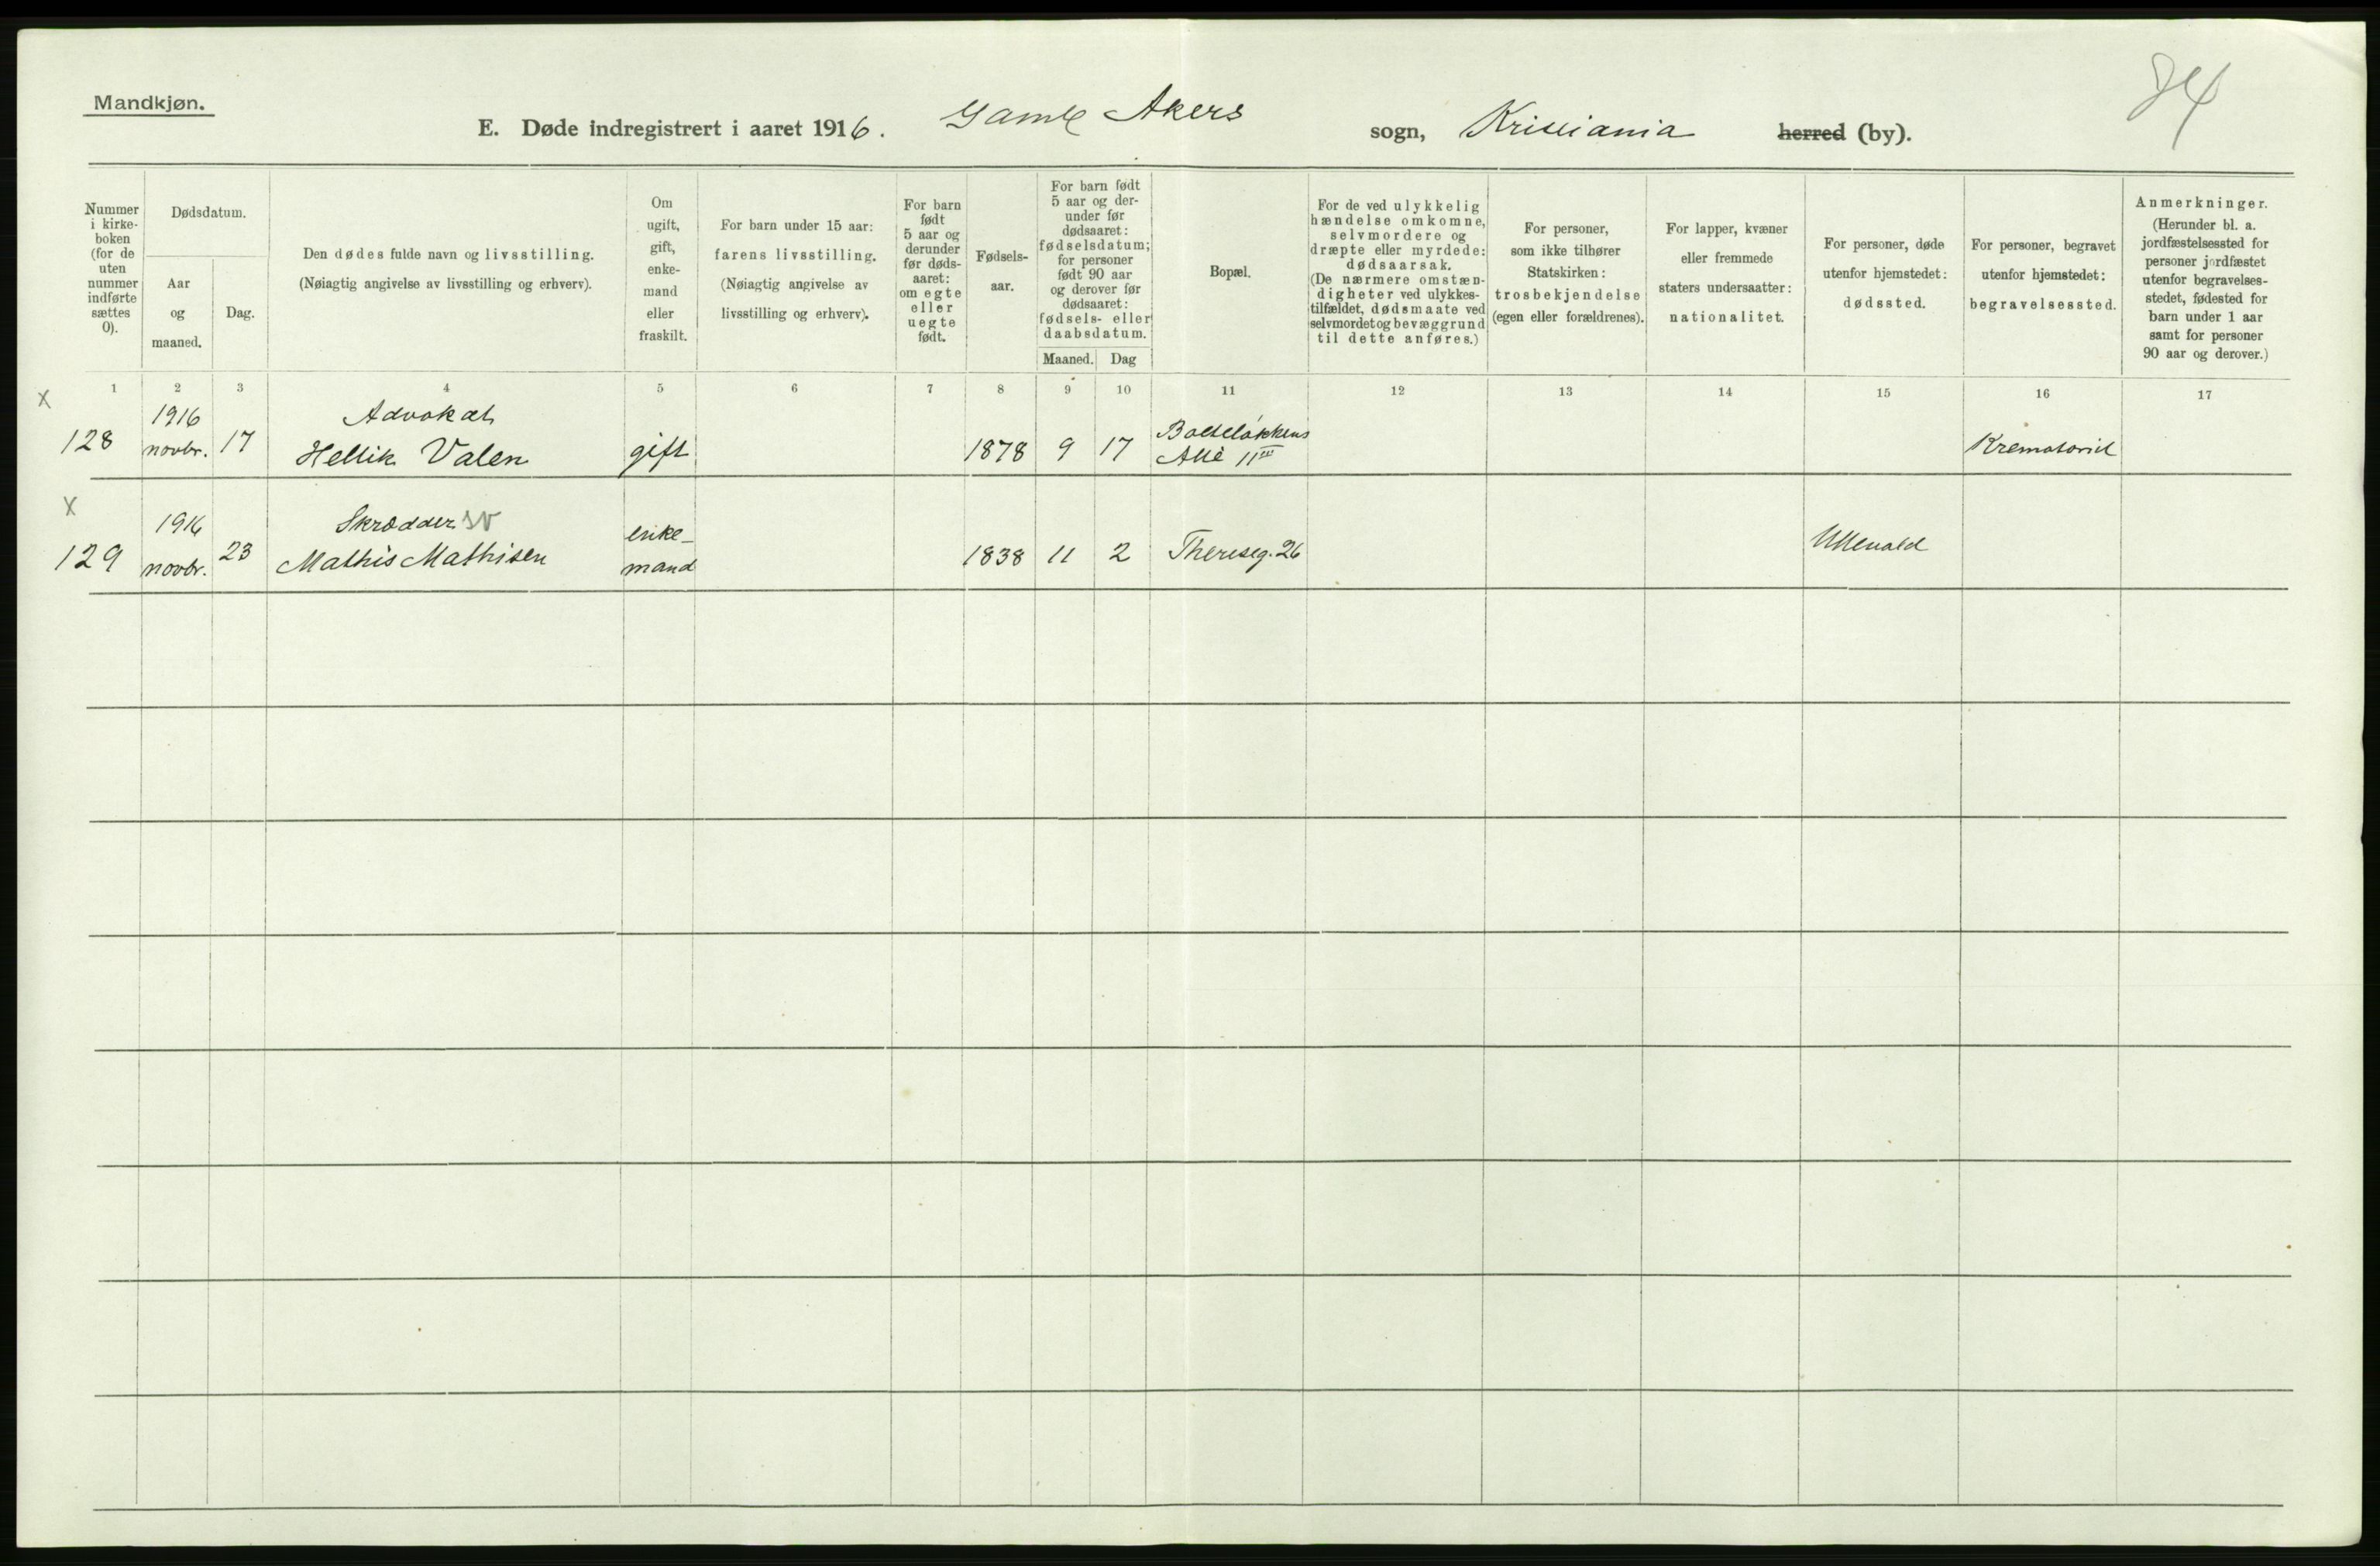 84
Mandkjøn.
E. Døde indregistrert i aaret 1916. Gamle Akers sogn, Kristiania herred (by).
Nummer i kirke-boken (for de uten nummer indførte sættes 0).
Dødsdatum.
Aar og maaned.
Dag.
Den dødes fulde navn og livsstilling.
(Nøiagtig angivelse av livsstilling og erhverv).
Om ugift, gift, enke-mand eller fraskilt.
For barn under 15 aar:
farens livsstilling.
(Nøiagtig angivelse av
livsstilling og erhverv).
For barn
født
5 aar og
derunder
før døds-
aaret:
om egte
eller
uegte
født.
Fødsels-
aar.
For barn født
5 aar og der-
under før
dødsaaret:
fødselsdatum;
for personer
født 90 aar
og derover før
dødsaaret:
fødsels- eller
daabsdatum.
Maaned. Dag
Bopæl.
For de ved ulykkelig
hændelse omkomne,
selvmordere og
dræpte eller myrdede:
dødsaarsak.
(De nærmere omstæn-
digheter ved ulykkes-
tilfældet, dødsmaate ved
selvmordet og bevæggrund
til dette anføres.)
For personer,
som ikke tilhører
Statskirken:
trosbekjendelse
(egen eller forældrenes).
For lapper, kvæner
eller fremmede
staters undersaatter:
nationalitet.
For personer, døde
utenfor hjemstedet:
dødssted.
For personer, begravet
utenfor hjemstedet:
begravelsessted.
Anmerkninger.
(Herunder bl. a.
jordfæstelsessted for
personer jordfæstet
utenfor begravelses-
stedet, fødested for
barn under 1 aar
samt for personer
90 aar og derover.)
1 2 3 4 5 6 7 8 9 10 11 12 13 14 15 16 17
x
1916 Advokat Bolteløkkens
128 novbr. 17 Hellik Valen gift 1878 9 17 Allè 11 Krematoriet
x
1916 Skrædder sv enke-
129 novbr. 23 Mathis Mathisen mand 1838 11 2 Thereseg. 26 Ullevold